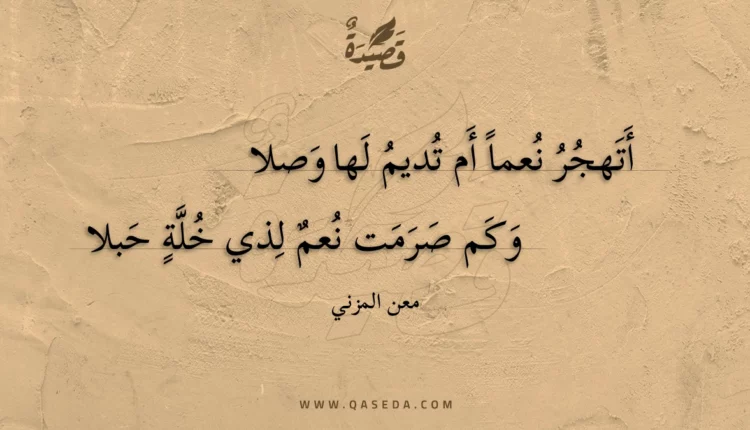 قَصِيدَةٌ
أَتَهجُرُ نُعماً أَم تُديمُ لَها وَصلا
وَكَم صَرَمَت نُعمٌ لِذي خُلَّةٍ حَبلا
معن المزني
WWW.QASEDA.COM